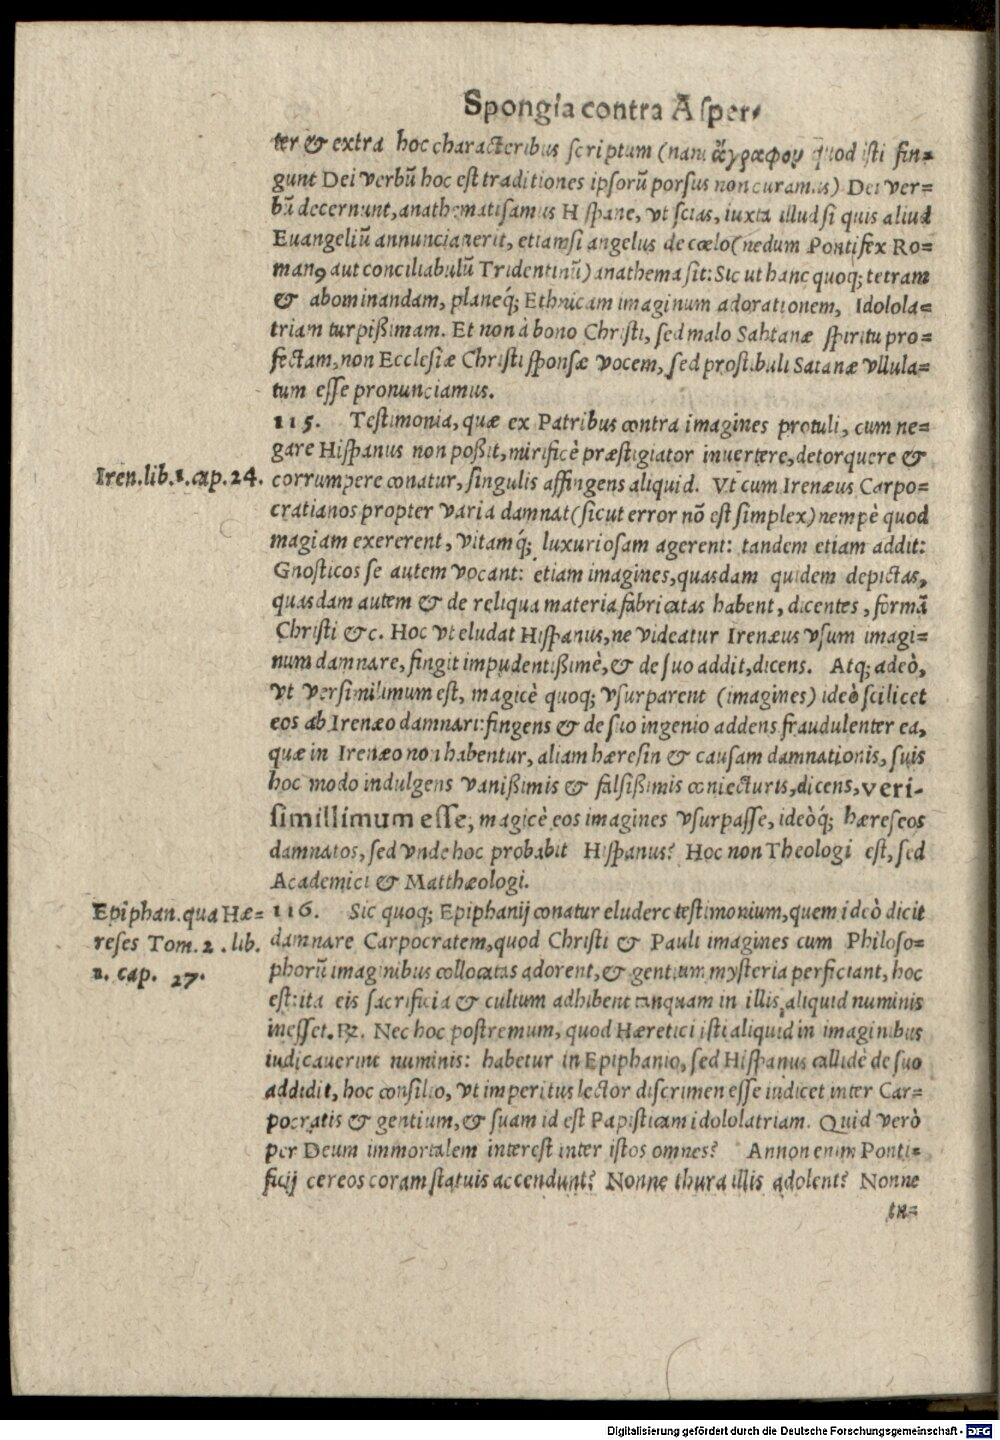 Spongia contra Asper-
ter & extra hoc characteribus scriptum (nam ἄγραφου quod isti fin=
gunt Dei verbũ hoc est traditiones ipsorũ porsus non curamus) Dei ver=
bũ decernunt, anathematisamus Hispane, vt scias, iuxta illud si quis aliud
Euangeliũ annunciauerit, etiamsi angelus de cœlo (nedum Pontifex Ro=
manꝰ aut conciliabulũ Tridentinũ) anathema sit: Sic ut hanc quoq; tetram
& abominandam, planeq́; Ethnicam imaginum adorationem, Idolola=
triam turpißimam. Et non à bono Christi, sed malo Sahtanæ spiritu pro=
fectam, non Ecclesiæ Christi sponsæ vocem, sed prostibuli Satanæ vllula=
tum esse pronunciamus.
115. Testimonia, quæ ex Patribus contra imagines protuli, cum ne=
gare Hispanus non poßit, mirificè præstigiator inuertere, detorquere &
Iren. lib. 1. cap. 24.
corrumpere conatur, singulis affingens aliquid. Vt cum Irenæus Carpo=
cratianos propter varia damnat (sicut error nõ est simplex) nempè quod
magiam exererent, vitamq́; luxuriosam agerent: tandem etiam addit:
Gnosticos se autem vocant: etiam imagines, quasdam quidem depictas,
quasdam autem & de reliqua materia fabricatas habent, dicentes, formã
Christi &c. Hoc vt eludat Hispanus, ne videatur Irenæus vsum imagi=
num damnare, fingit impudentißimè, & de suo addit, dicens. Atq; adeò,
vt versimilimum est, magicè quoq; vsurparent (imagines) ideò scilicet
eos ab Irenæo damnari: fingens & de suo ingenio addens fraudulenter ea,
quæ in Irenæo non habentur, aliam hæresin & causam damnationis, suis
hoc modo indulgens vanißimis & falsißimis coniecturis, dicens, veri-
simillimum esse, magicè eos imagines vsurpasse, ideòq́; hæreseos
damnatos, sed vnde hoc probabit Hispanus? Hoc non Theologi est, sed
Academici & Matthæologi.
Epiphan. qua Hæ=
reses Tom. 2. lib.
1. cap. 27.
116. Sic quoq; Epiphanij conatur eludere testimonium, quem ideò dicit
damnare Carpocratem, quod Christi & Pauli imagines cum Philoso=
phorũ imaginibus collocatas adorent, & gentium mysteria perficiant, hoc
est: ita eis sacrificia & cultum adhibent tanquam in illis aliquid numinis
inesset. ℞. Nec hoc postremum, quod Hæretici isti aliquid in imaginibus
iudicauerint numinis: habetur in Epiphanio, sed Hispanus callidè de suo
addidit, hoc consilio, vt imperitus lector discrimen esse iudicet inter Car=
pocratis & gentium, & suam id est Papisticam idololatriam. Quid verò
per Deum immortalem interest inter istos omnes? Annon enim Ponti=
ficij cereos coram statuis accendunt? Nonne thura illis adolent? Nonne
in=
Digitalisierung gefördert durch die Deutsche Forschungsgemeinschaft - DFG